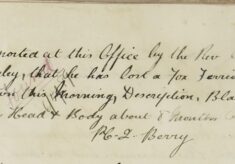 ported at this Office by the Rev
ley, that he has lost a Fox Terrie
on this Morning, Description, Bla
Head & Body about 8 Months
Berry